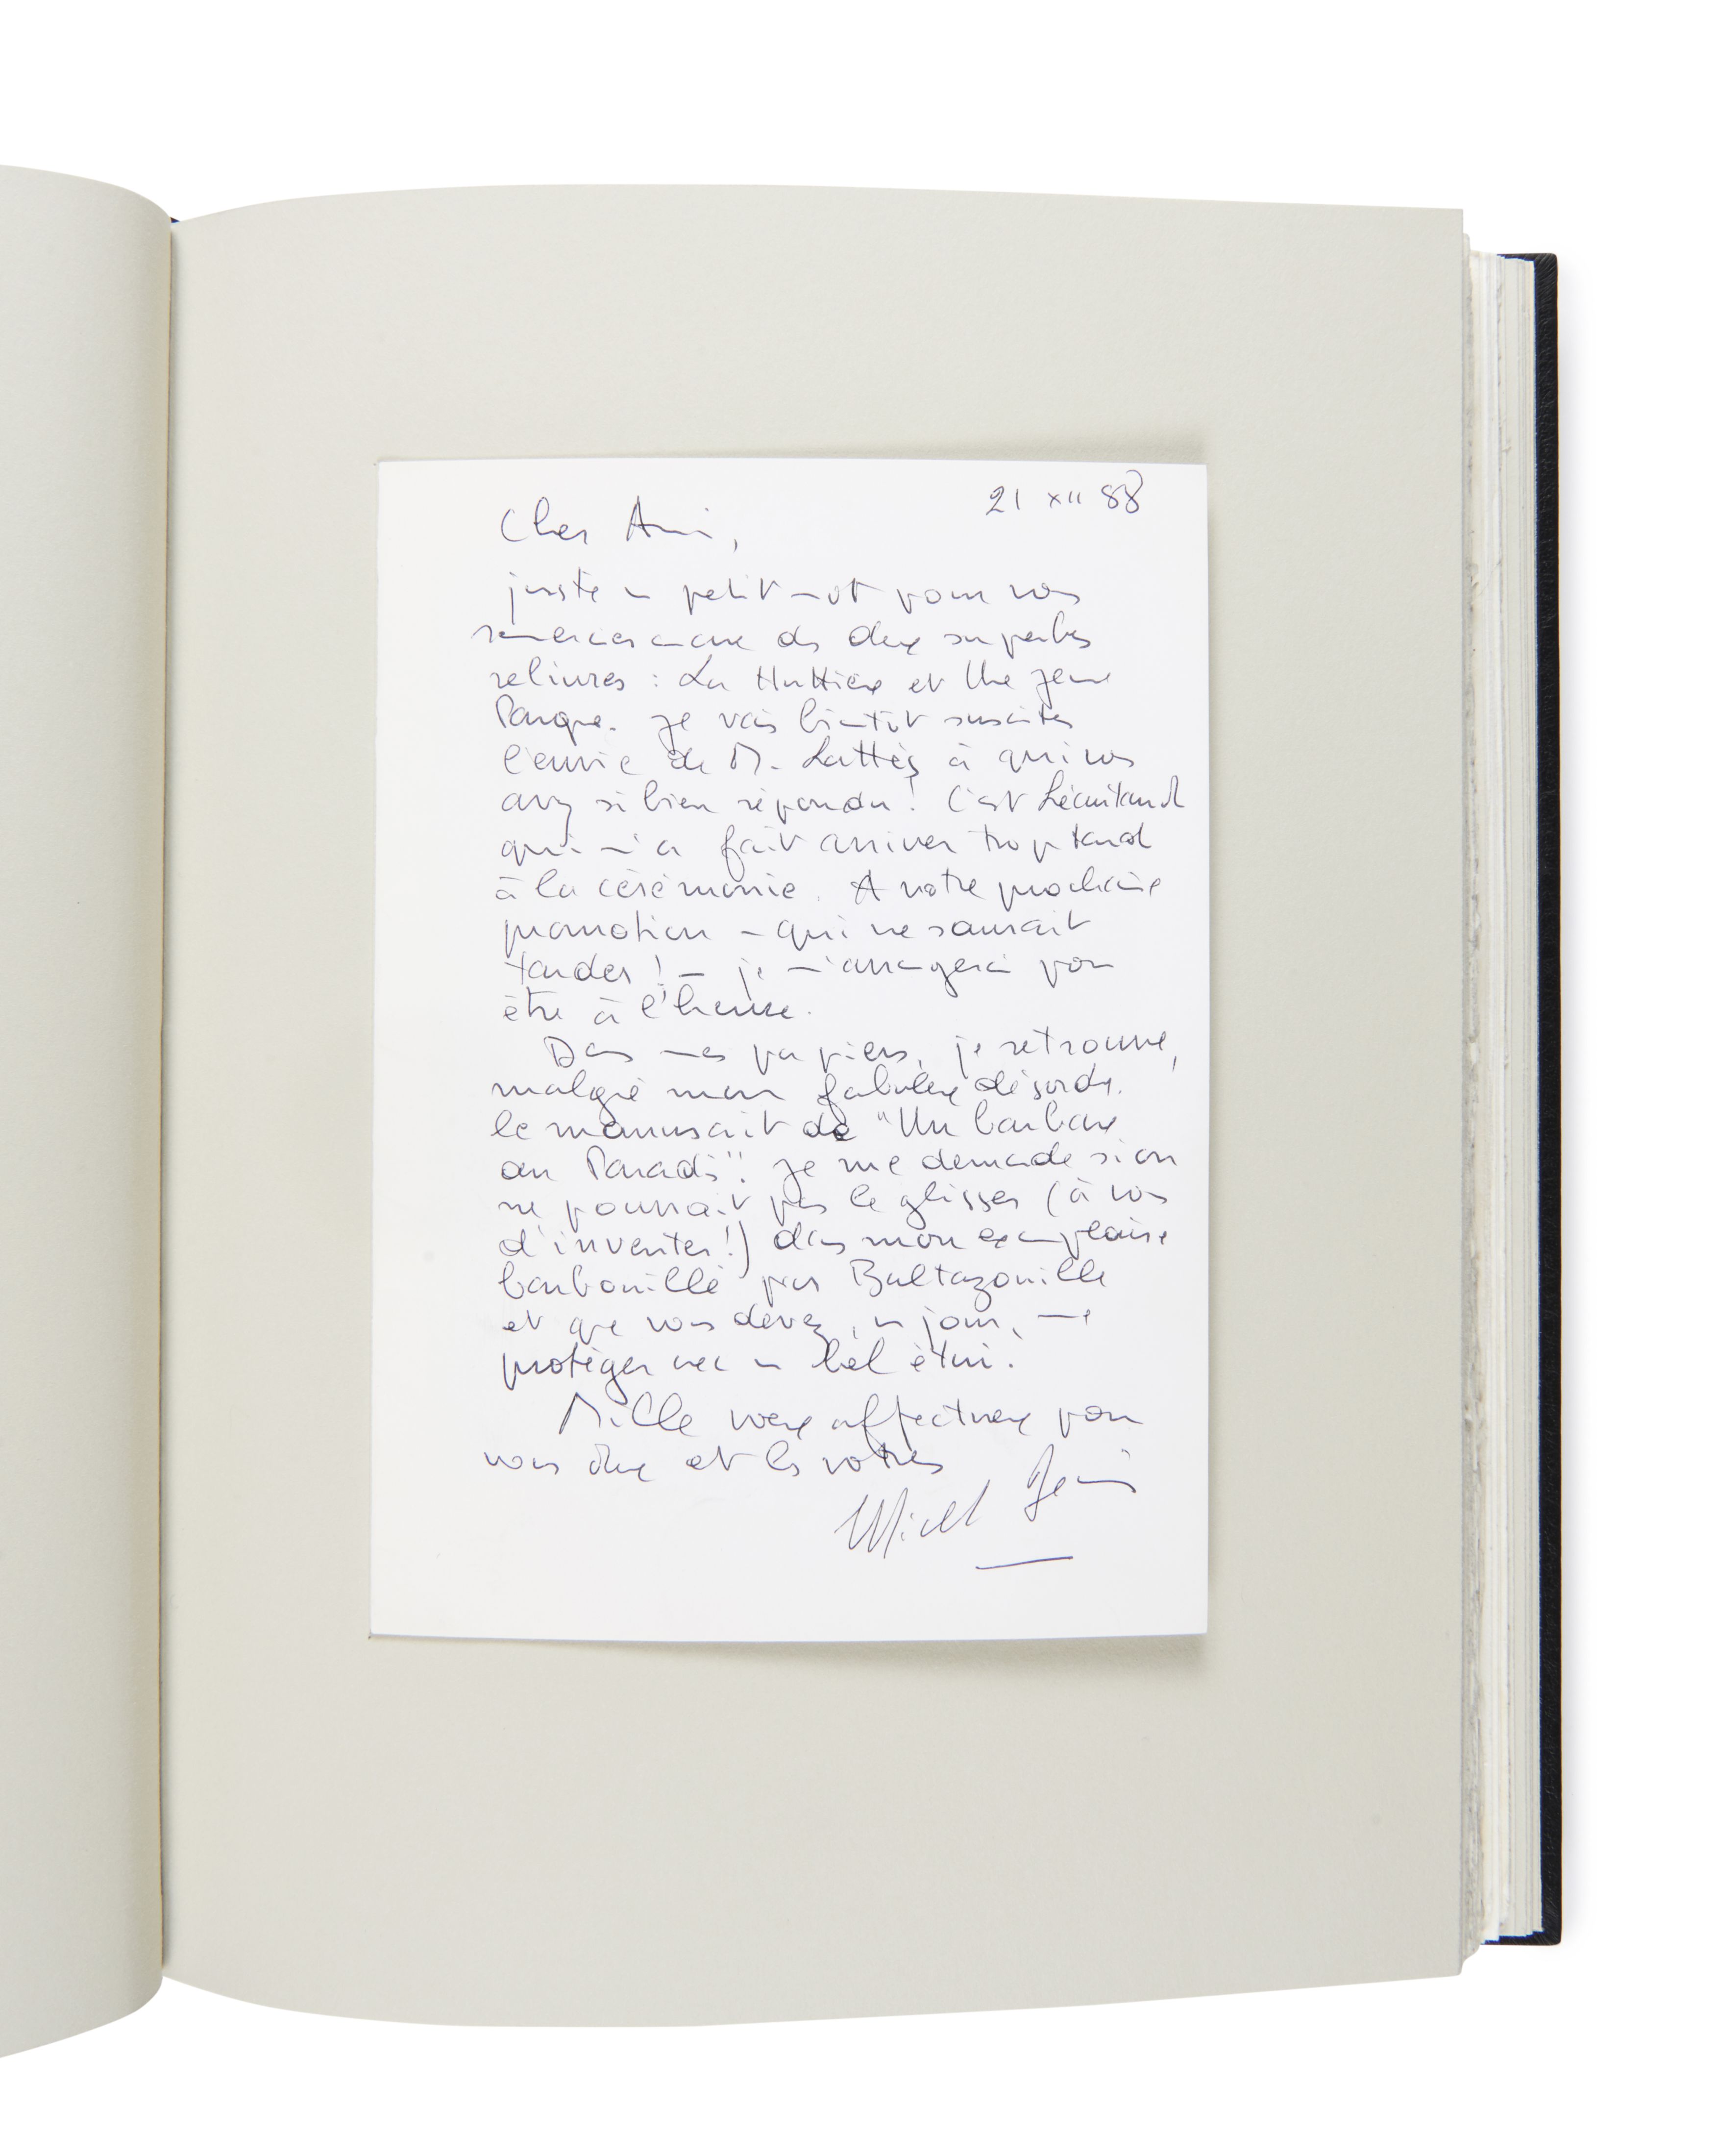 21 XII 88
Cher Ami,
juste un petit mot pour vous
remercier encore des deux superbes
reliures : La et Une jeune
Parque. Je vais bientôt susciter
l'envie de M. Lattès à qui vous
avez si bien répondu ! C'est Lécuitard
qui m'a fait arriver trop tard
à la cérémonie. A votre prochaine
promotion - qui ne saurait
tarder ! - je m'arrangerai pour
être à l'heure.
Dans mes papiers, je retrouve,
malgré mon fabuleux désordre,
le manuscrit de "Un barbare
au Paradis". Je me demande si on
ne pourrait pas le glisser (à vous
d'inventer !) dans mon exemplaire
barbouillé par Baltazouille
et que vous devez, un jour, me
protéger avec un bel étui.
Mille voeux affectueux pour
vous deux et les vôtres
Michel Déon